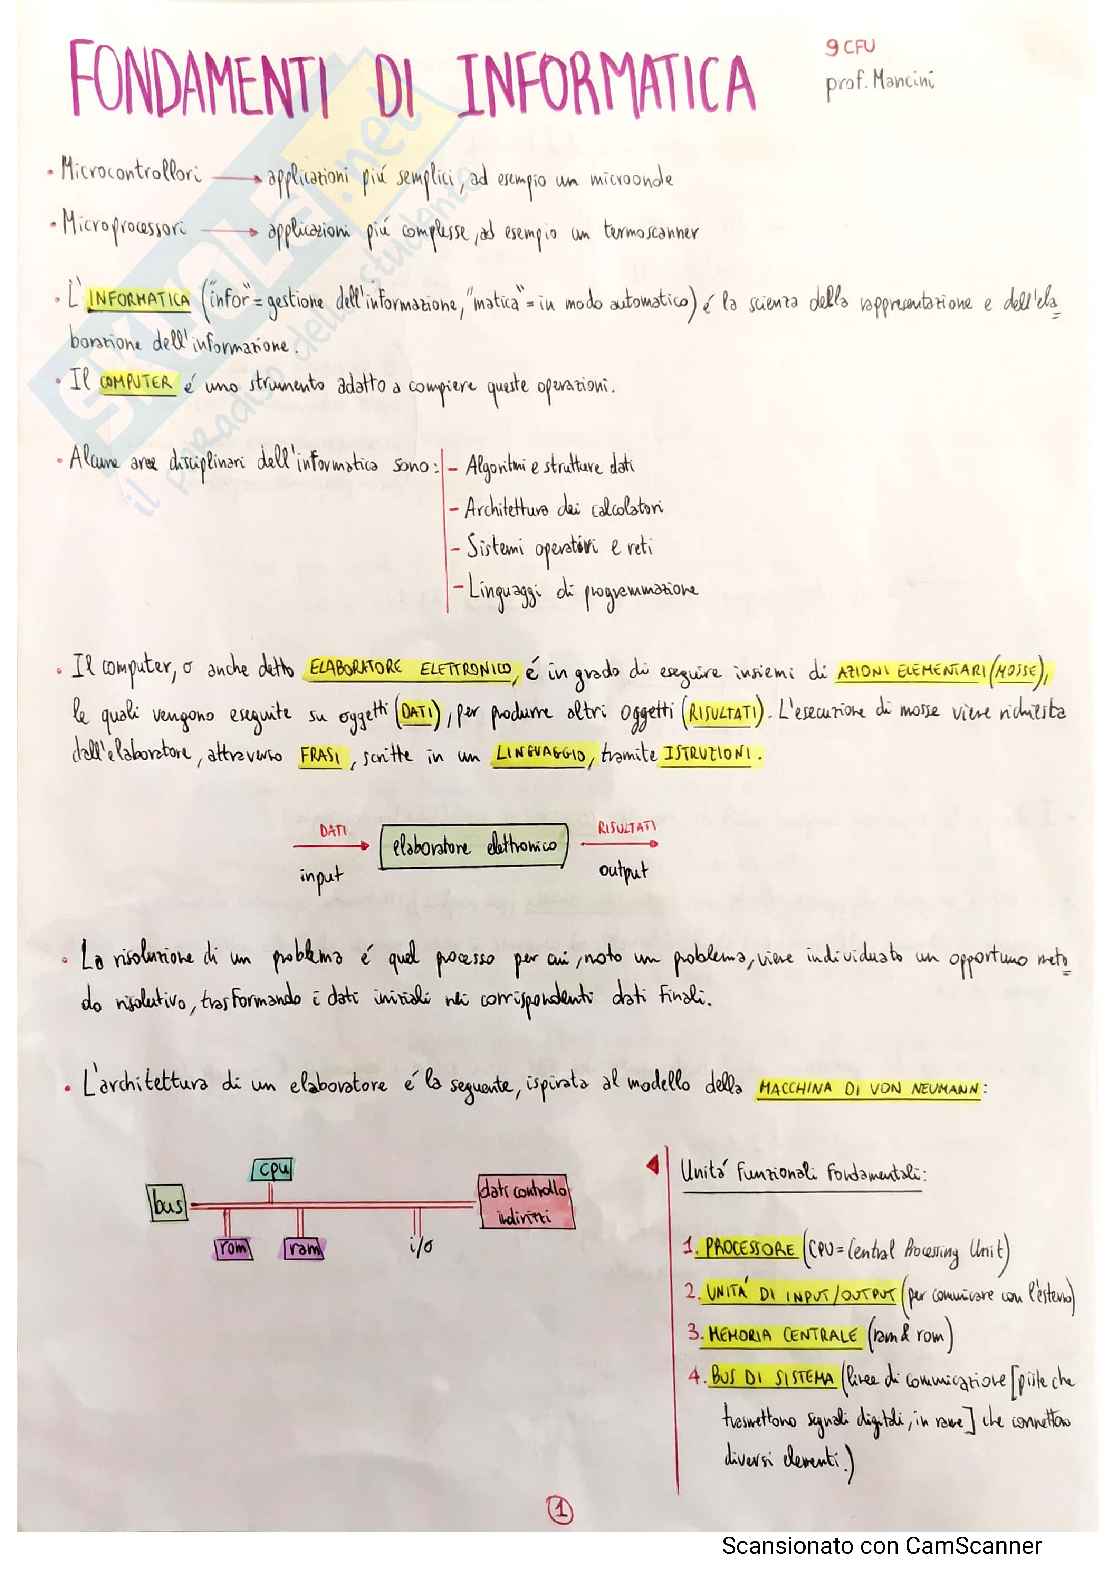 FONDAMENTI DI INFORMATICA
9 CFU
prof. Mancini
• Microcontrollori → applicazioni piú semplici, ad esempio un microonde
• Microprocessori → applicazioni piú complesse, ad esempio un termoscanner
• L'INFORMATICA ("infor"= gestione dell'informazione, "matica"= in modo automatico) é la scienza della rappresentazione e dell'ela
borazione dell'informazione.
• Il COMPUTER é uno strumento adatto a compiere queste operazioni.
• Alcune aree disciplinari dell'informatica sono: - Algoritmi e strutture dati
- Architettura dei calcolatori
- Sistemi operativi e reti
- Linguaggi di programmazione
• Il computer, o anche detto ELABORATORE ELETTRONICO, é in grado di eseguire insiemi di AZIONI ELEMENTARI (MOSSE),
le quali vengono eseguite su oggetti (DATI), per produrre altri oggetti (RISULTATI). L'esecuzione di mosse viene richiesta
dall'elaboratore, attraverso FRASI, scritte in un LINGUAGGIO, tramite ISTRUZIONI.
DATI
input
elaboratore elettronico
RISULTATI
output
• La risoluzione di un problema é quel processo per cui, noto un problema, viene individuato un opportuno meto
do risolutivo, trasformando i dati iniziali nei corrispondenti dati finali.
• L'architettura di un elaboratore é la seguente, ispirata al modello della MACCHINA DI VON NEUMANN:
cpu
bus
dati controllo
indirizzi
rom
ram
i/o
Unitá funzionali fondamentali:
1. PROCESSORE (CPU = Central Processing Unit)
2. UNITÁ DI INPUT/OUTPUT (per comunicare con l'esterno)
3. MEMORIA CENTRALE (ram & rom)
4. BUS DI SISTEMA (linee di comunicazione [piste che
trasmettono segnali digitali, in rame] che connettono
diversi elementi.)
1
SKUOLA.net
il paradiso dello studente
Scansionato con CamScanner